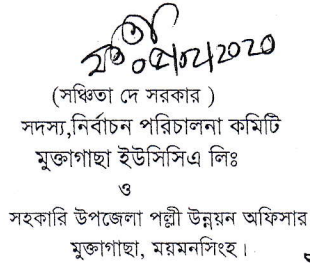 (সঞ্চিতা দে সরকার )
সদস্য,নির্বাচন পরিচালনা কমিটি
মুক্তাগাছা ইউসিসিএ লিঃ
ও
সহকারি উপজেলা পল্লী উন্নয়ন অফিসার
মুক্তাগাছা, ময়মনসিংহ।